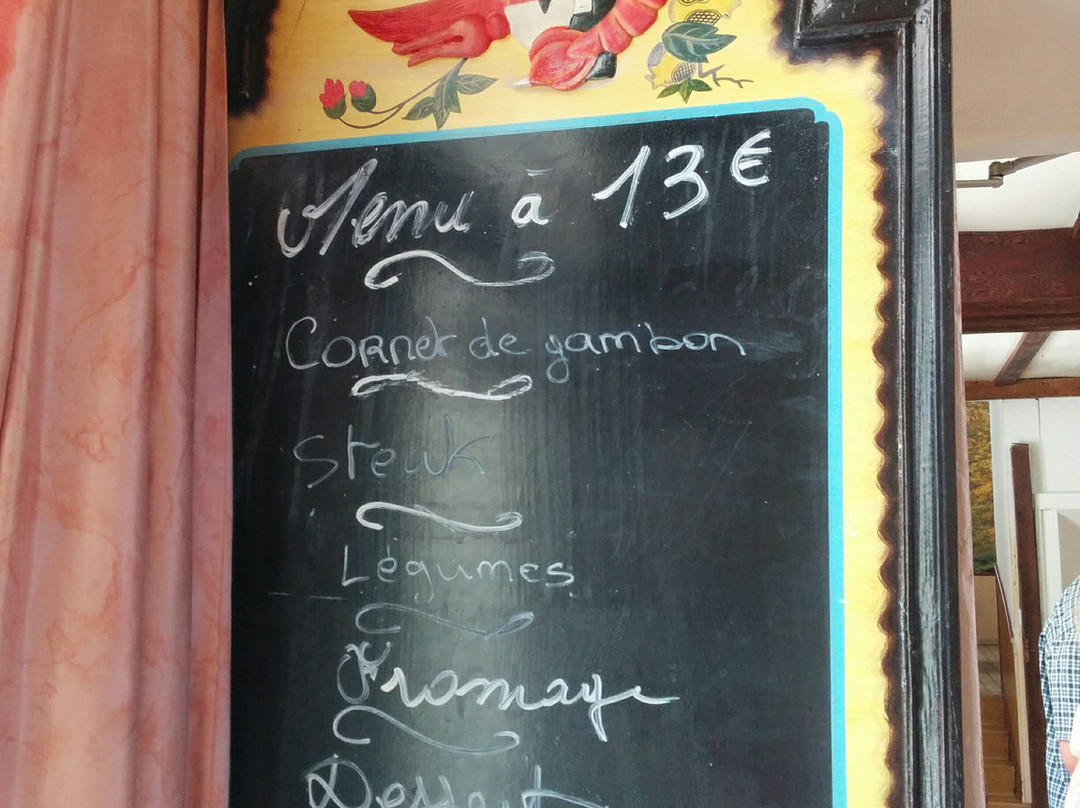 Menu à 13€
Cornet de jambon
Steak
Légumes
Fromage
Dessert